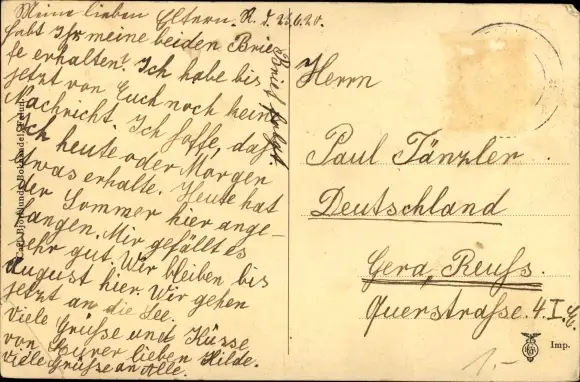 Meine lieben Eltern. R. d. 23.6.20.
Habt Ihr meine beiden Brie-
fe erhalten? Ich habe bis
jetzt von Euch noch keine
Nachricht. Ich hoffe, daß
ich heute oder Morgen
etwas erhalte. Heute hat
der Sommer hier ange-
fangen. Mir gefällt es
sehr gut. Wir bleiben bis
August hier. Wir gehen
jetzt an die See.
Viele Grüße und Küsse
von Eurer lieben Hilde.
Viele Grüße an Alle.
Brief folgt
Carl Björklunds Bokhandel,
Herrn
Paul Tänzler.
Deutschland
Gera, Reuß.
Querstraße. 4 I.
Imp.
1.-